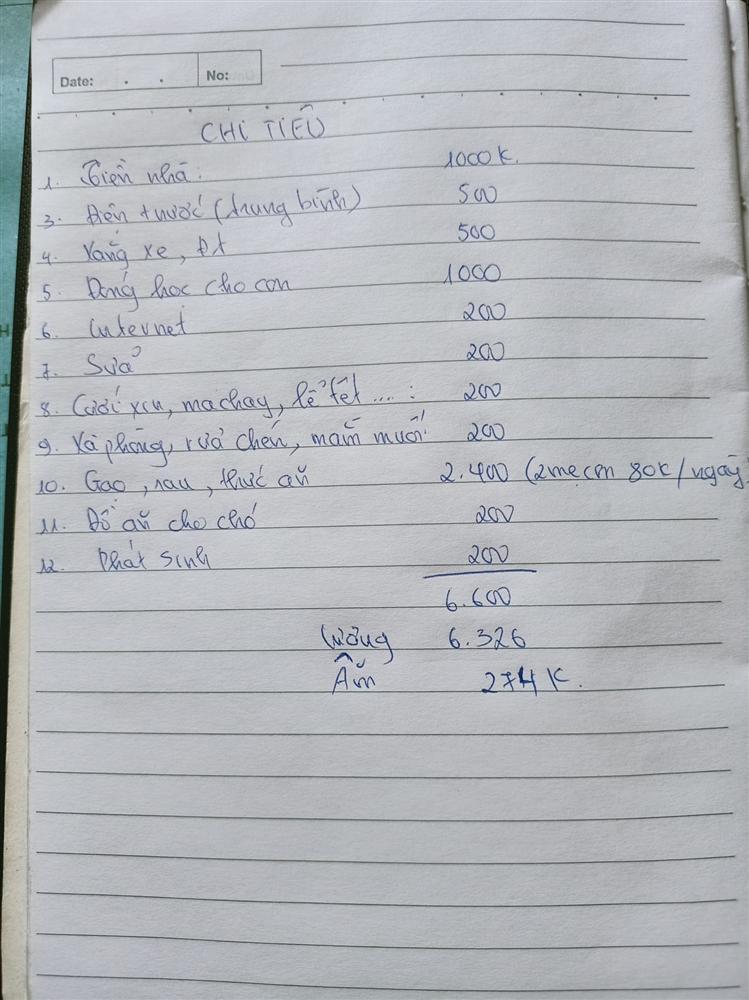 Date: . . No:
CHI TIÊU
1. Tiền nhà: 1000K.
3. Điện + nước (trung bình) 500
4. Xăng xe, ĐT 500
5. Đóng học cho con 1000
6. internet 200
7. Sữa 200
8. Cưới xin, ma chay, lễ tết....: 200
9. Xà phòng, rửa chén, mắm muối: 200
10. Gạo, rau, thức ăn 2.400 (2 mẹ con 80K/ngày)
11. Đồ ăn cho chó 200
12. Phát sinh 200
6.600
Lương 6.326
Âm 274K.